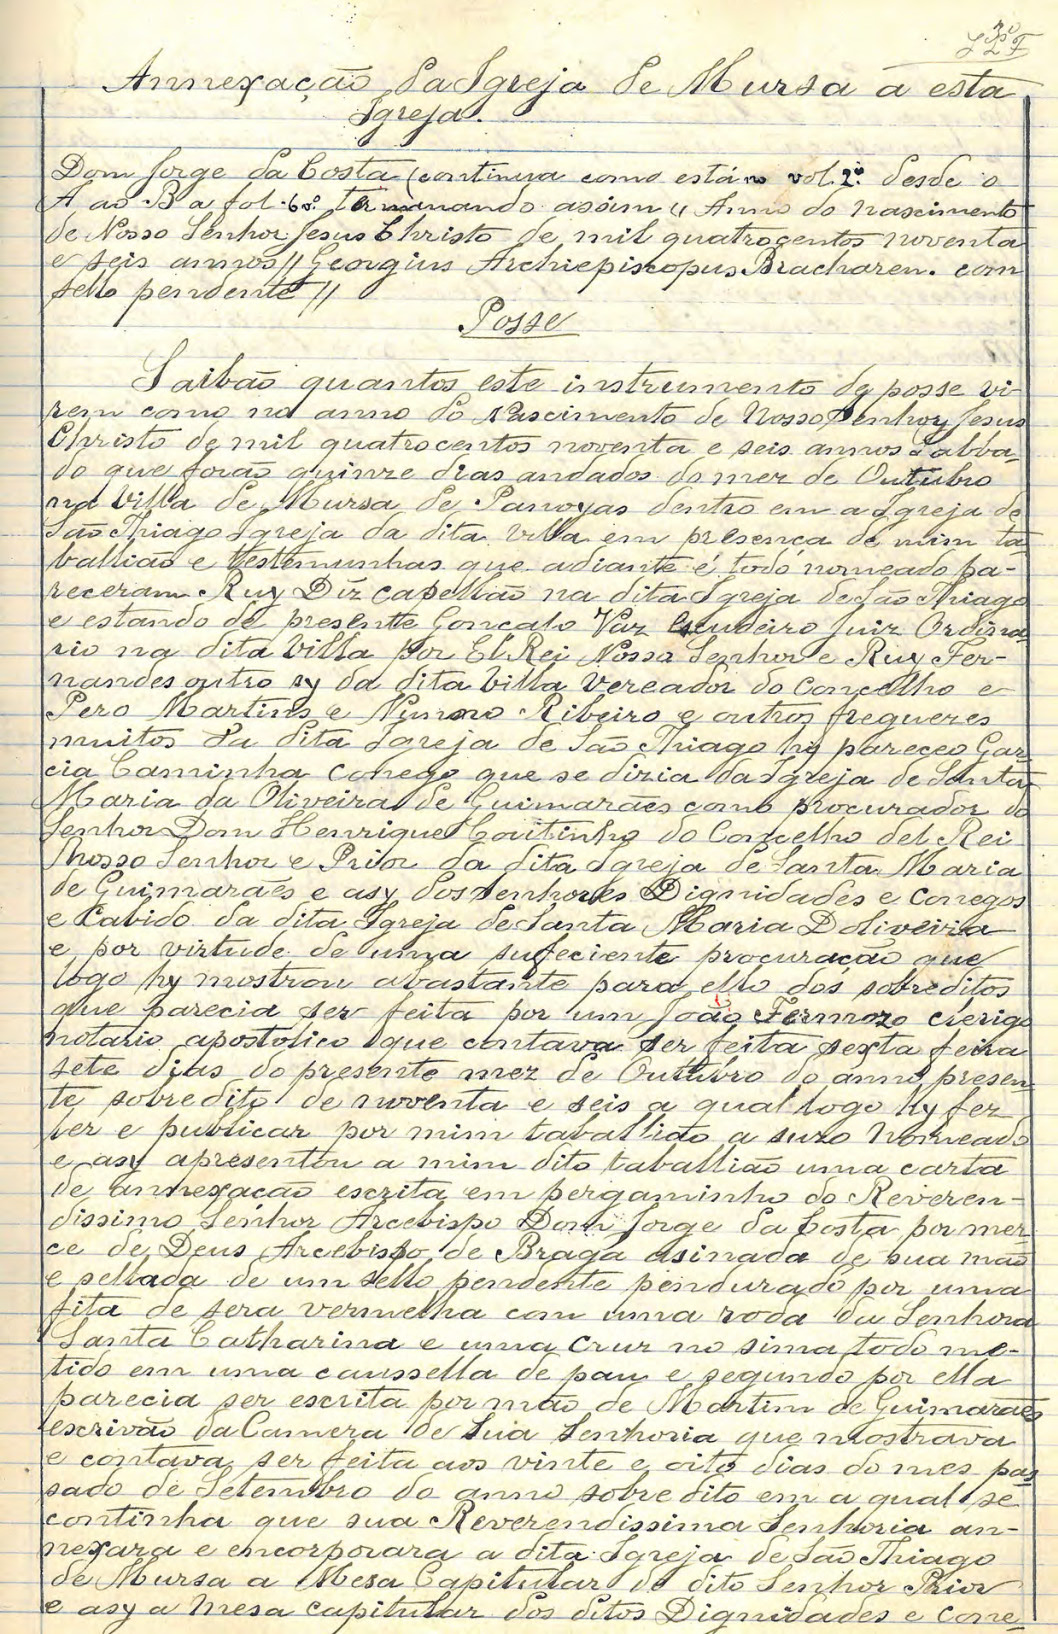 Annexação da Igreja de Mursa a esta
Igreja.
Dom Jorge da Costa (continua como está no vol. 2º desde o
A ao B a fol. 60. terminando assim „ Anno do nascimento
de Nosso Senhor Jesus Christo de mil quatrocentos noventa
e seis annos // Georgius Archiepiscopus Bracharen. com
sello pendente //
Posse
Saibão quantos este instrumento de posse vi-
rem como no anno do Nascimento de Nosso Senhor Jesus
Christo de mil quatrocentos noventa e seis annos Sabba-
do que forão quinze dias andados do mez de Outubro
na Villa de Mursa de Panoyas dentro em a Igreja de
São Thiago Igreja da dita Villa em presença de mim ta-
ballião e testemunhas que adiante é todo nomeado pa-
receram Ruy Diz capellão na dita Igreja de São Thiago
e estando de presente Gonçalo Vaz Escudeiro Juiz Ordina
rio na dita Villa por El Rei Nosso Senhor e Ruy Fer-
nandes outro sy da dita Villa Vereador do Concelho e
Pero Martins e Nunno Ribeiro e outros freguezes
muitos da dita Igreja de São Thiago hy pareceo Gar-
cia Caminha Conego que se dizia da Igreja de Santa
Maria da Oliveira de Guimarães como procurador do
Senhor Dom Henrique Coutinho do Concelho del Rei
Nosso Senhor e Prior da dita Igreja de Santa Maria
de Guimarães e asy dos Senhores Dignidades e Conegos
e Cabido da dita Igreja de Santa Maria Doliveira
e por virtude de uma sufeciente procuração que
logo hy mostrou abastante para ello dos sobreditos
que parecia ser feita por um João Fermozo clerigo
notario apostolico que contava ser feita sexta feira
sete dias do presente mez de Outubro do anno presen-
te sobredito de noventa e seis a qual logo hy fez
ler e publicar por mim taballião a suzo nomeado
e asy apresentou a mim dito taballião uma carta
de annexação escrita em pergaminho do Reveren-
dissimo Senhor Arcebispo Dom Jorge da Costa por mer-
ce de Deus Arcebispo de Braga asinada de sua mão
e sellada de um sello pendente pendurado por uma
fita de sera vermelha com uma roda da Senhora
Santa Catharina e uma Cruz no sima todo me-
tido em uma caussella de pau e segundo por ella
parecia ser escrita por mão de Martim de Guimarães
escrivão da Camera de Sua Senhoria que mostrava
e contava ser feita aos vinte e oito dias do mes pas-
sado de Setembro do anno sobredito em a qual se
continha que sua Reverendissima Senhoria an-
nexara e encorporara a dita Igreja de São Thiago
de Mursa a Mesa Capitular do dito Senhor Prior
e asy a Mesa capitular dos ditos Dignidades e Cone-